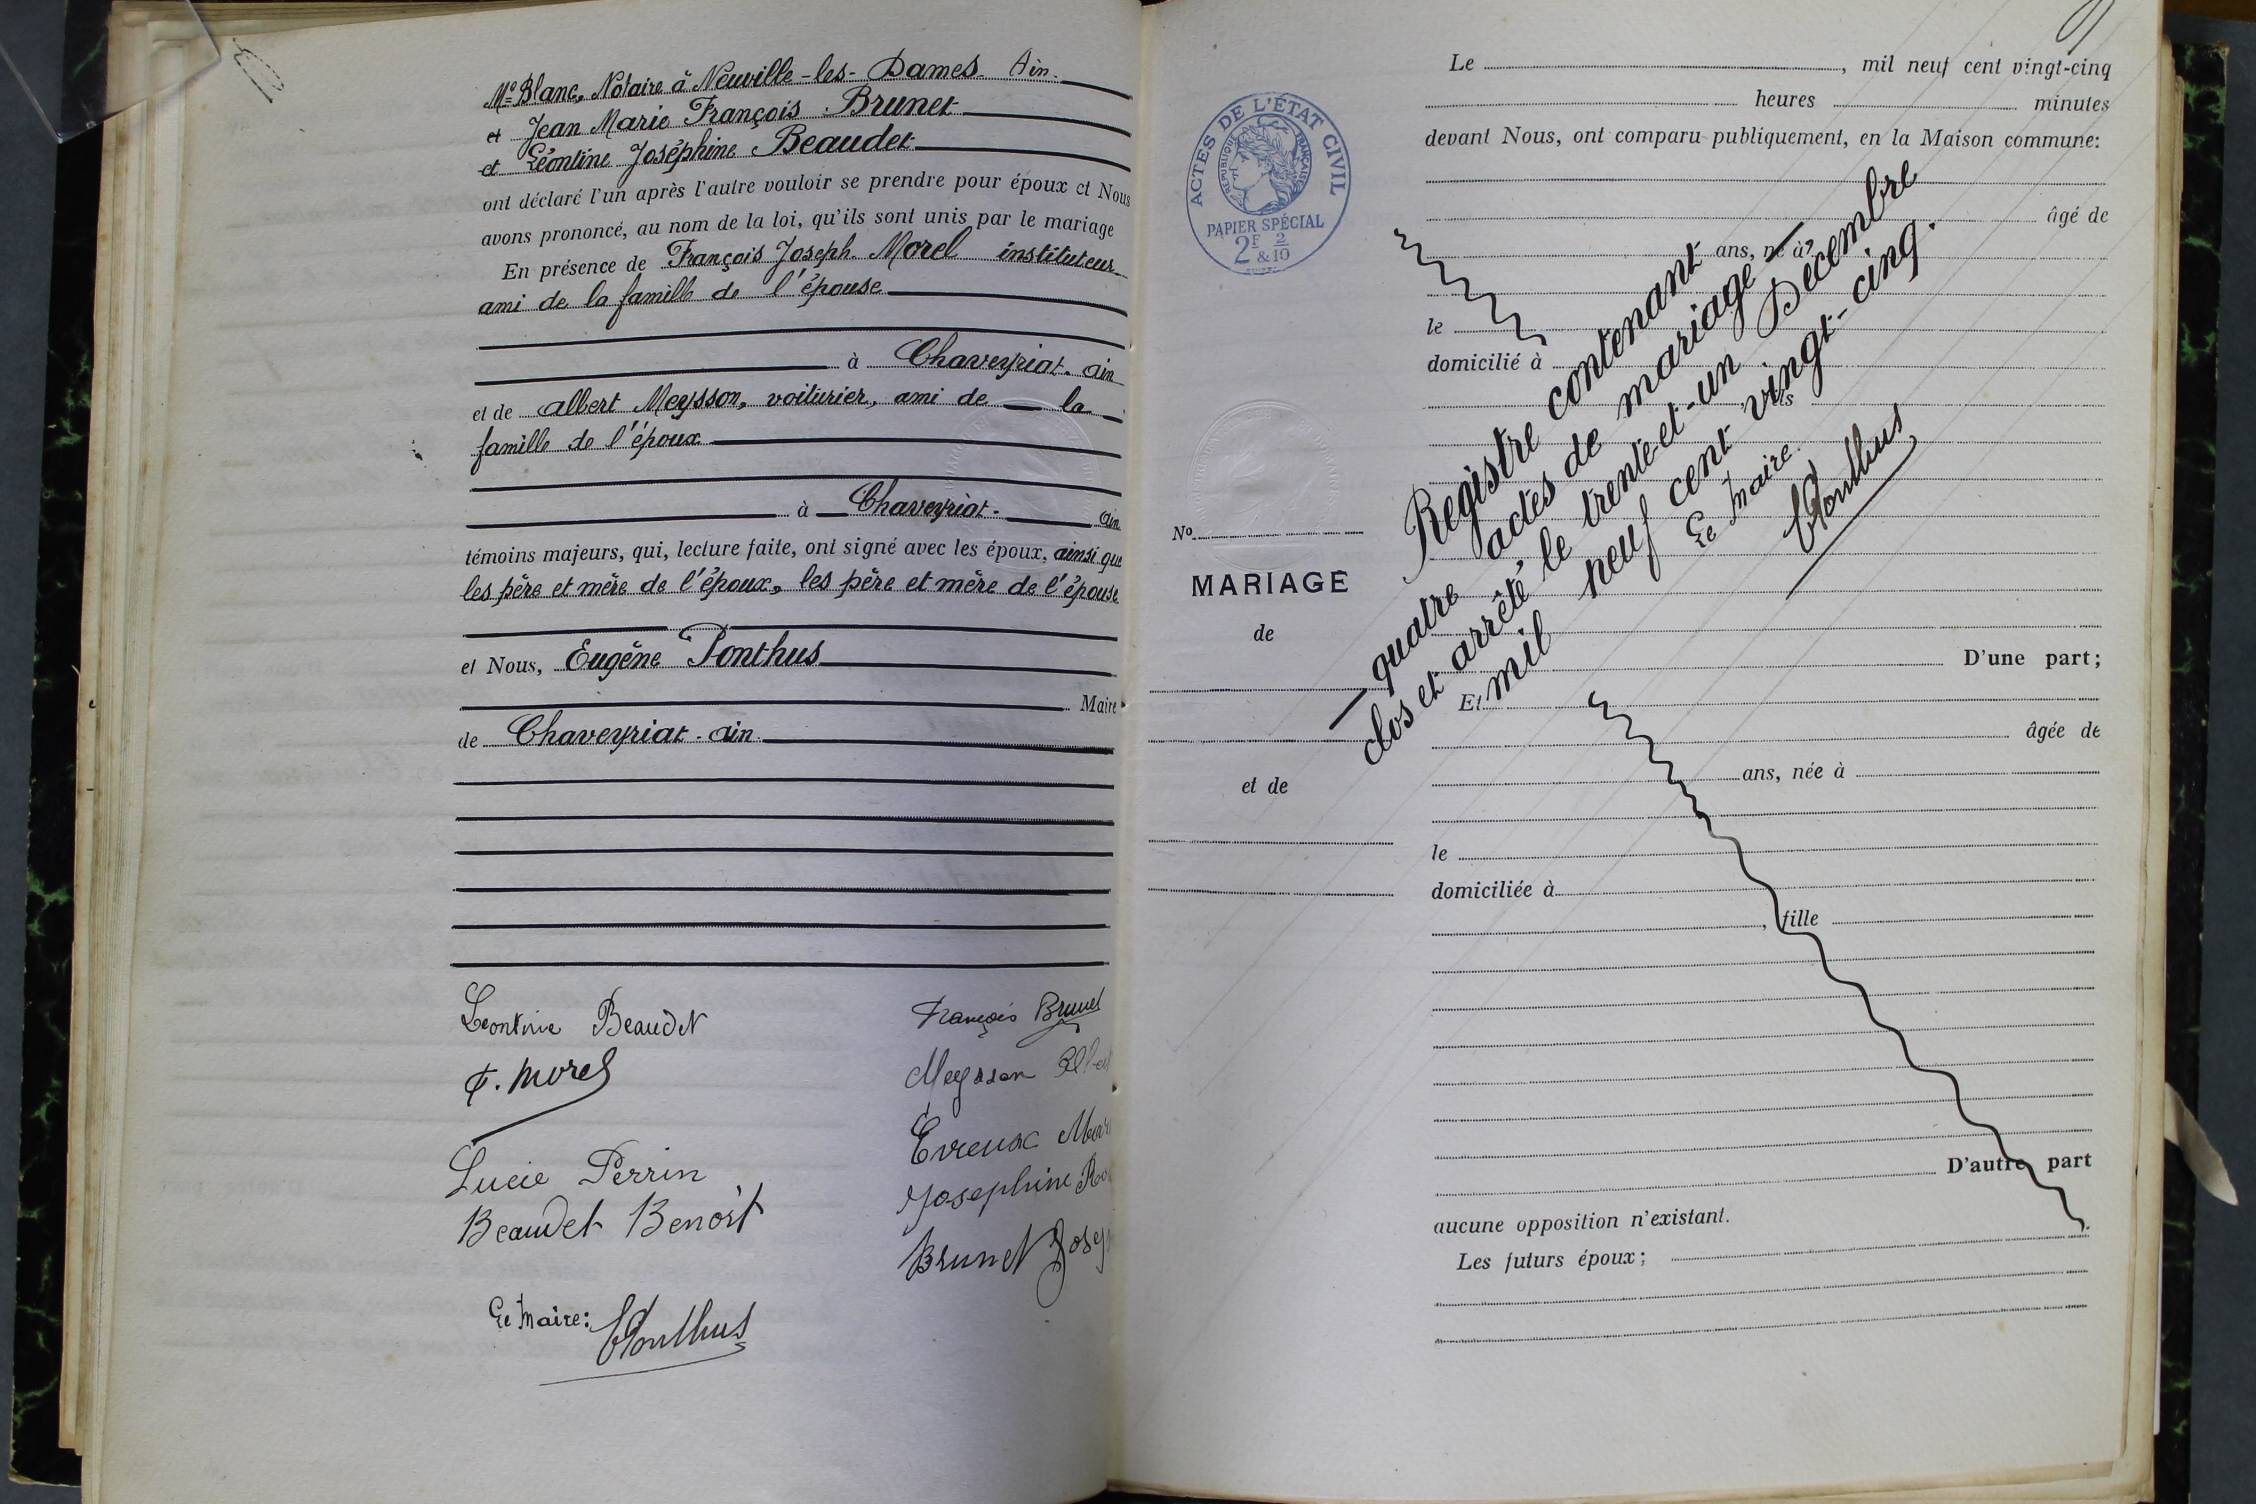 Me Blanc, Notaire à Neuville-les-Dames Ain.
et Jean Marie François Brunet
et Léontine Joséphine Beaudet
ont déclaré l'un après l'autre vouloir se prendre pour époux et Nous
avons prononcé, au nom de la loi, qu'ils sont unis par le mariage
En présence de François Joseph Morel instituteur
ami de la famille de l'épouse
à Chaveyriat. ain
et de albert Meysson, voiturier, ami de la
famille de l'époux
à Chaveyriat. ain
témoins majeurs, qui, lecture faite, ont signé avec les époux, ainsi que
les père et mère de l'époux, les père et mère de l'épouse
et Nous, Eugène Ponthus
Maire
de Chaveyriat. ain.
Léontine Beaudet
François Brunet
F. Morel
Meysson
Evreux
Lucie Perrin
Josephine
Beaudet Benoît
Brunet
Le Maire: Ponthus
ACTES DE L'ÉTAT CIVIL
RÉPUBLIQUE FRANÇAISE
PAPIER SPÉCIAL
2F & 2/10
No
MARIAGE
de
et de
Le , mil neuf cent vingt-cinq
heures minutes
devant Nous, ont comparu publiquement, en la Maison commune:
âgé de
ans, né à
le
domicilié à
fils
D'une part;
Et
âgée de
ans, née à
le
domiciliée à
, fille
D'autre part
aucune opposition n'existant.
Les futurs époux;
Registre contenant
quatre actes de mariage
clos et arrêté, le trente-et-un Décembre
mil neuf cent vingt-cinq.
Le Maire
Ponthus